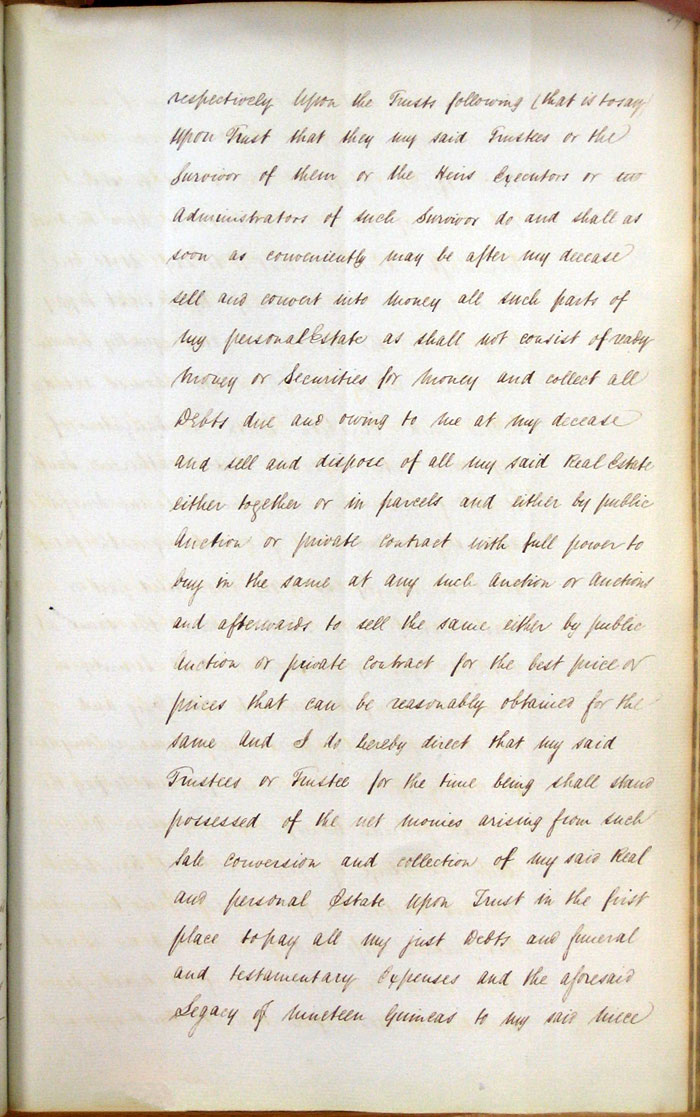 respectively Upon the Trusts following (that is to say)
Upon Trust that they my said Trustees or the
Survivor of them or the Heirs Executors or
Administrators of such Survivor do and shall as
soon as conveniently may be after my decease
sell and convert into Money all such parts of
my personal Estate as shall not consist of ready
Money or Securities for Money and collect all
Debts due and owing to me at my decease
and sell and dispose of all my said Real Estate
either together or in parcels and either by public
Auction or private Contract with full power to
buy in the same at any such Auction or Auctions
and afterwards to sell the same either by public
Auction or private Contract for the best price or
prices that can be reasonably obtained for the
same And I do hereby direct that my said
Trustees or Trustee for the time being shall stand
possessed of the net monies arising from such
Sale Conversion and collection of my said Real
and personal Estate Upon Trust in the first
place to pay all my just Debts and funeral
and testamentary Expenses and the aforesaid
Legacy of Nineteen Guineas to my said Niece